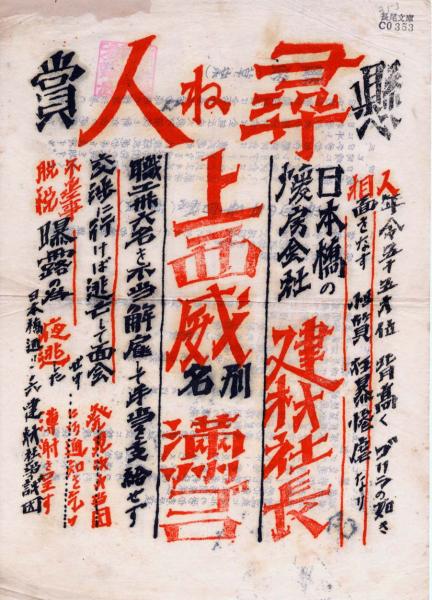 長尾文庫
C0353
懸賞
尋ね人
人年令五十五才位 背高く ゴリラの如き
相面をなす 性質 狂暴怪虐なり
日本橋の
煖房会社
建材社長
上西威
別名
満鮮
職工卅六名を不当解雇し手当を支給せず
交渉に行けば逃亡して面会
せず
発見次第当団
に御通知を乞ふ
不正事
脱税
曝露の為 夜逃した
薄謝を呈す
建材社争議団